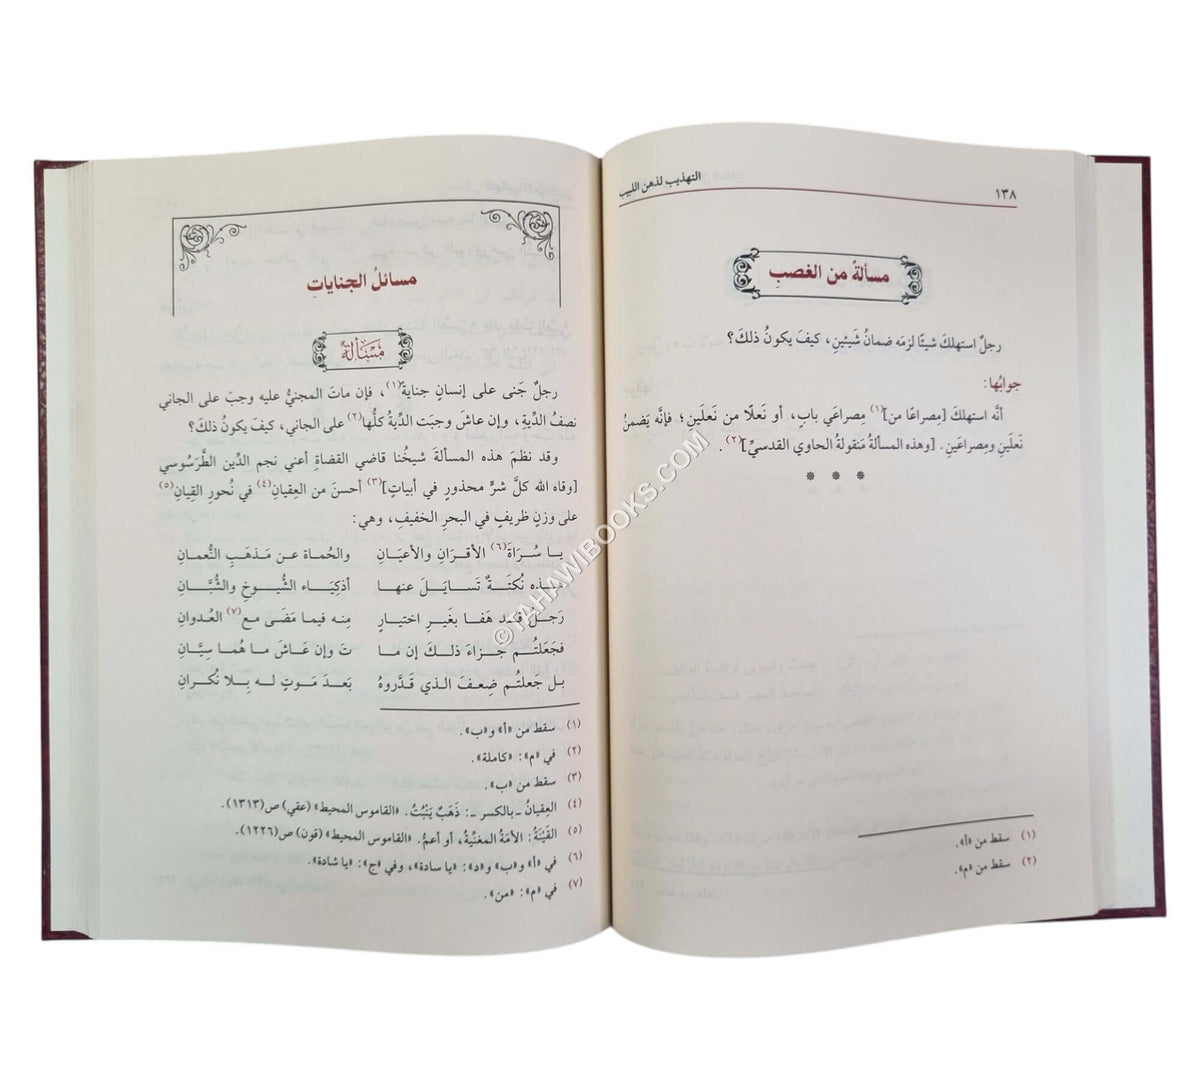 التهذيب لذهن اللبيب
١٣٨
مسألةٌ من الغصبِ
رجلٌ استهلكَ شيئًا لزمَه ضمانُ شَيئينِ، كيفَ يكونُ ذلكَ؟
جوابُها:
أنَّه استهلكَ [مِصراعًا من](١) مِصراعَي بابٍ، أو نَعلًا من نَعلَينِ؛ فإنَّه يَضمنُ
نَعلَينِ ومِصراعَينِ. [وهذه المسألةُ مَنقولةُ الحاوي القدسيِّ](٢).
* * *
(١) سقط من «أ».
(٢) سقط من «م».
مسائلُ الجناياتِ
مَسْأَلة
رجلٌ جَنى على إنسانٍ جنايةً(١)، فإن ماتَ المجنيُّ عليه وجبَ على الجاني
نصفُ الدِّيةِ، وإن عاشَ وجبَت الدِّيةُ كلُّها(٢) على الجاني، كيفَ يكونُ ذلكَ؟
وقد نظمَ هذه المسألةَ شيخُنا قاضي القضاةِ أعني نجم الدِّين الطَّرَسُوسي
[وقاه الله كلَّ شرٍّ محذورٍ في أبياتٍ](٣) أحسنَ من العِقيانِ(٤) في نُحورِ القِيانِ(٥)
على وزنٍ ظريفٍ في البحرِ الخفيفِ، وهي:
يا سُرَاةَ(٦) الأقرَانِ والأعيَانِ والحُماة عن مَذهَبِ النُّعمانِ
هذه نُكتَةٌ تَسايَلَ عنها أذكِيَاء الشُّيوخِ والشُّبَّانِ
رَجلٌ قد هَفا بغَيرِ اختيارٍ مِنه فيما مَضَى مع(٧) العُدوانِ
فجَعَلتُم جزاءَ ذلكَ إن ما تَ وإن عَاشَ ما هُما سِيَّانِ
بل جَعلتُم ضِعفَ الذي قَدَّروهُ بَعدَ مَوتٍ له بِلا نُكرانِ
(١) سقط من «أ» و«ب».
(٢) في «م»: «كاملة».
(٣) سقط من «ب».
(٤) العِقيانُ ـ بالكسر ـ: ذَهَبٌ يَنْبُتُ. «القاموس المحيط» (عقي) ص(١٣١٣).
(٥) القَيْنَةُ: الأمَةُ المغنِّيةُ، أو أعمُّ. «القاموس المحيط» (قون) ص(١٢٢٦).
(٦) في «أ» و«ب» و«د»: «يا سادة»، وفي «ج»: «يا شادة».
(٧) في «م»: «من».
© TAHAWIBOOKS.COM